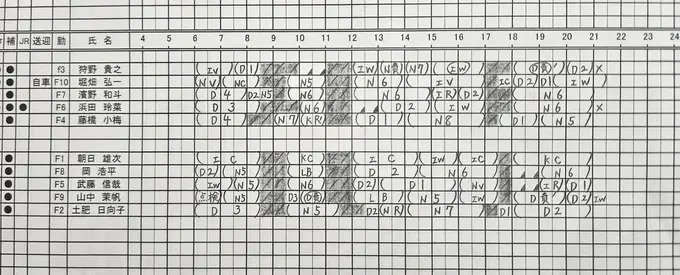 補 JR 送迎 勤 氏 名 4 5 6 7 8 9 10 11 12 13 14 15 16 17 18 19 20 21 22 23 24
f3 狩野 貴之 (IV)(D1) (IW)(N責)(N7)(IW) (D責')(D2)×
自車 F10 堀畑 弘一 (NV)(NC) (N5) (N6)(IV) IC(D2)(D1)(IW)
F7 濱野 和斗 (D4)(D2 N5 (N6) (N6)(IR)(D2) (N6)
F6 浜田 玲菜 (D3) (N6) (D2)(IW) (N6)×
F4 藤橋 小梅 (D4) (N7)(KR) (D1)(N8) (D1)(N5)
F1 朝日 雄次 (IC) (KC) (IC)(IW)(IC) (KC)
F8 岡 浩平 (D2)(N5) (LB) (D2)(N6) (N6)
F5 武藤 信哉 (IW)(N5) (N6) (D2)(D1)(NV) (IR)(D1)
F9 山中 茉帆 (点検)(N5) D3(D責) (LB)(N5)(IW) (D責')(D2)IW
F2 土肥 日向子 (D3) (N5) D2(NR)(N7) D1(D2)